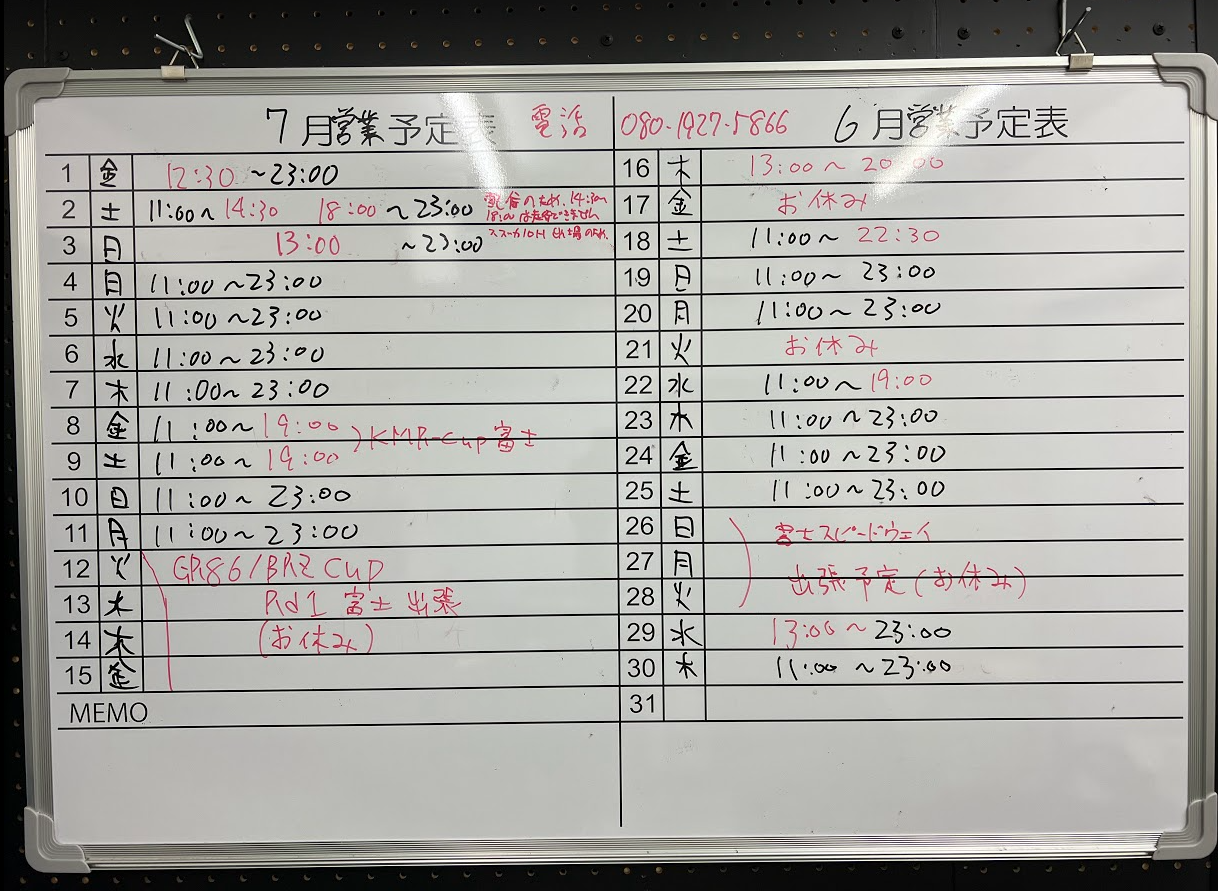 7月営業予定表 電話
1 金 12:30 ~23:00
2 土 11:00~14:30 18:00~23:00
18:00は走行できません
3 日 13:00 ~23:00
4 日 11:00~23:00
5 火 11:00~23:00
6 水 11:00~23:00
7 木 11:00~23:00
8 金 11:00~19:00
KMR-Cup富士
9 土 11:00~19:00
10 日 11:00~23:00
11 月 11:00~23:00
12 火 GR86/BRZ Cup
13 木 Rd1 富士 出張
14 木 (お休み)
15 金
MEMO
080-1927-5866 6月営業予定表
16 木 13:00~20:00
17 金 お休み
18 土 11:00~22:30
19 日 11:00~23:00
20 月 11:00~23:00
21 火 お休み
22 水 11:00~19:00
23 木 11:00~23:00
24 金 11:00~23:00
25 土 11:00~23:00
26 日 富士スピードウェイ
27 月 出張予定(お休み)
28 火
29 水 13:00~23:00
30 木 11:00~23:00
31